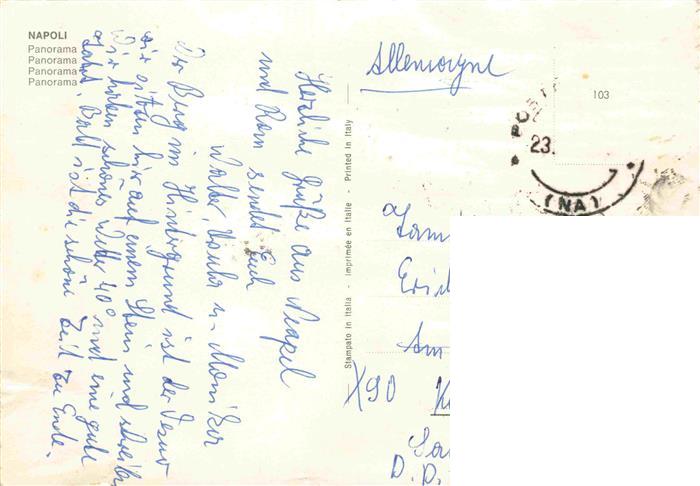 NAPOLI
Panorama
Panorama
Panorama
Panorama
Herzliche Grüße aus Neapel
und Rom sendet Euch
Walter, u. Monika
Der Berg im Hintergrund ist der Vesuv
wir sitzen hier auf einem Stein und schreiben
Wir haben schönes Wetter 40° und eine gute
Bald ist die schöne Zeit zu Ende.
Stampato in Italia - imprimée en Italie - Printed in Italy
Allemagne
103
23.
(NA)
Am
X90
D.D.